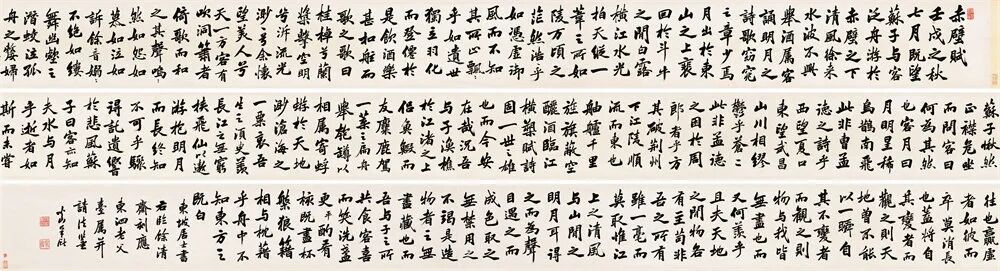 赤壁賦
壬戌之秋
七月既望
蘇子与客
泛舟游於
赤壁之下
清風徐来
水波不興
舉酒属客
誦明月之
詩歌窈窕
之章少焉
月出於東
山之上裵
回於斗牛
之間白露
横江水光
接天縱一
葦之所如
陵万頃之
茫然浩乎
如憑虚御
風而不知
其所止飄
乎如遺世
獨立羽化
而登僊於
是飲酒樂
甚扣舷而
歌之歌曰
桂棹兮蘭
槳擊空明
兮泝流光
渺兮余懷
望美人兮
天一方客有
吹洞簫者
倚歌而和
之其聲嗚
然如怨如
慕如泣如
訴餘音嫋
不絶如縷
舞幽壑之
潛蛟泣孤
舟之嫠婦
蘇子愀然
正襟危坐
而問客曰
何為其然
也客曰月
明星稀
烏鵲南飛
此非曹孟
德之詩乎
西望夏口
東望武昌
山川相繆
鬱乎蒼〻
此非孟德
之困於周
郎者乎方
其破荆州
下江陵順
流而東也
舳艫千里
旌旗蔽空
釃酒臨江
横槊賦詩
固一世之雄
也而今安
在哉況吾
与子漁樵
於江渚之上
侣魚鰕而
友麋鹿駕
一葉之扁舟
舉匏樽以
相属寄蜉
蝣於天地
渺滄海之
一粟哀吾
生之須臾羡
長江之無窮
挟飛仙以遨
游抱明月
而長終知
不可乎驟
得託遺響
於悲風蘇
子曰客亦知
夫水与月
乎逝者如
斯而未嘗
往也贏虚
者如彼而
卒莫消長
也盖将自
其變者而
觀之則天
地曾不能
以一瞬自
其不變者
而觀之則
物与我皆
無盡也而
又何羡乎
且夫天地
之間物各
有主苟非
吾之所有
雖一毫而
莫取惟江
上之清風
与山間之
明月耳得
之而為聲
目遇之而
成色取之
無禁用之
不竭是造
物者之無
盡藏也而
吾与子之所
共食客喜
而笑洗盏
更酌肴
核既盡杯
盤狼籍
相与枕藉
乎舟中不
知東方之
既白
東坡居士書